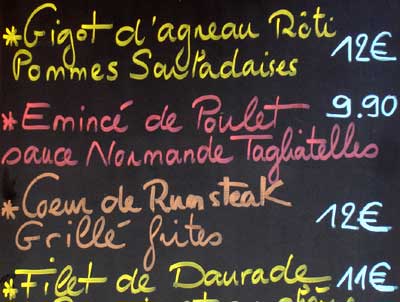 *Gigot d'agneau Rôti
Pommes Sarladaises 12€
*Emincé de Poulet 9.90
sauce Normande Tagliatelles
*Coeur de Rumsteak
Grillé frites 12€
*Filet de Daurade 11€